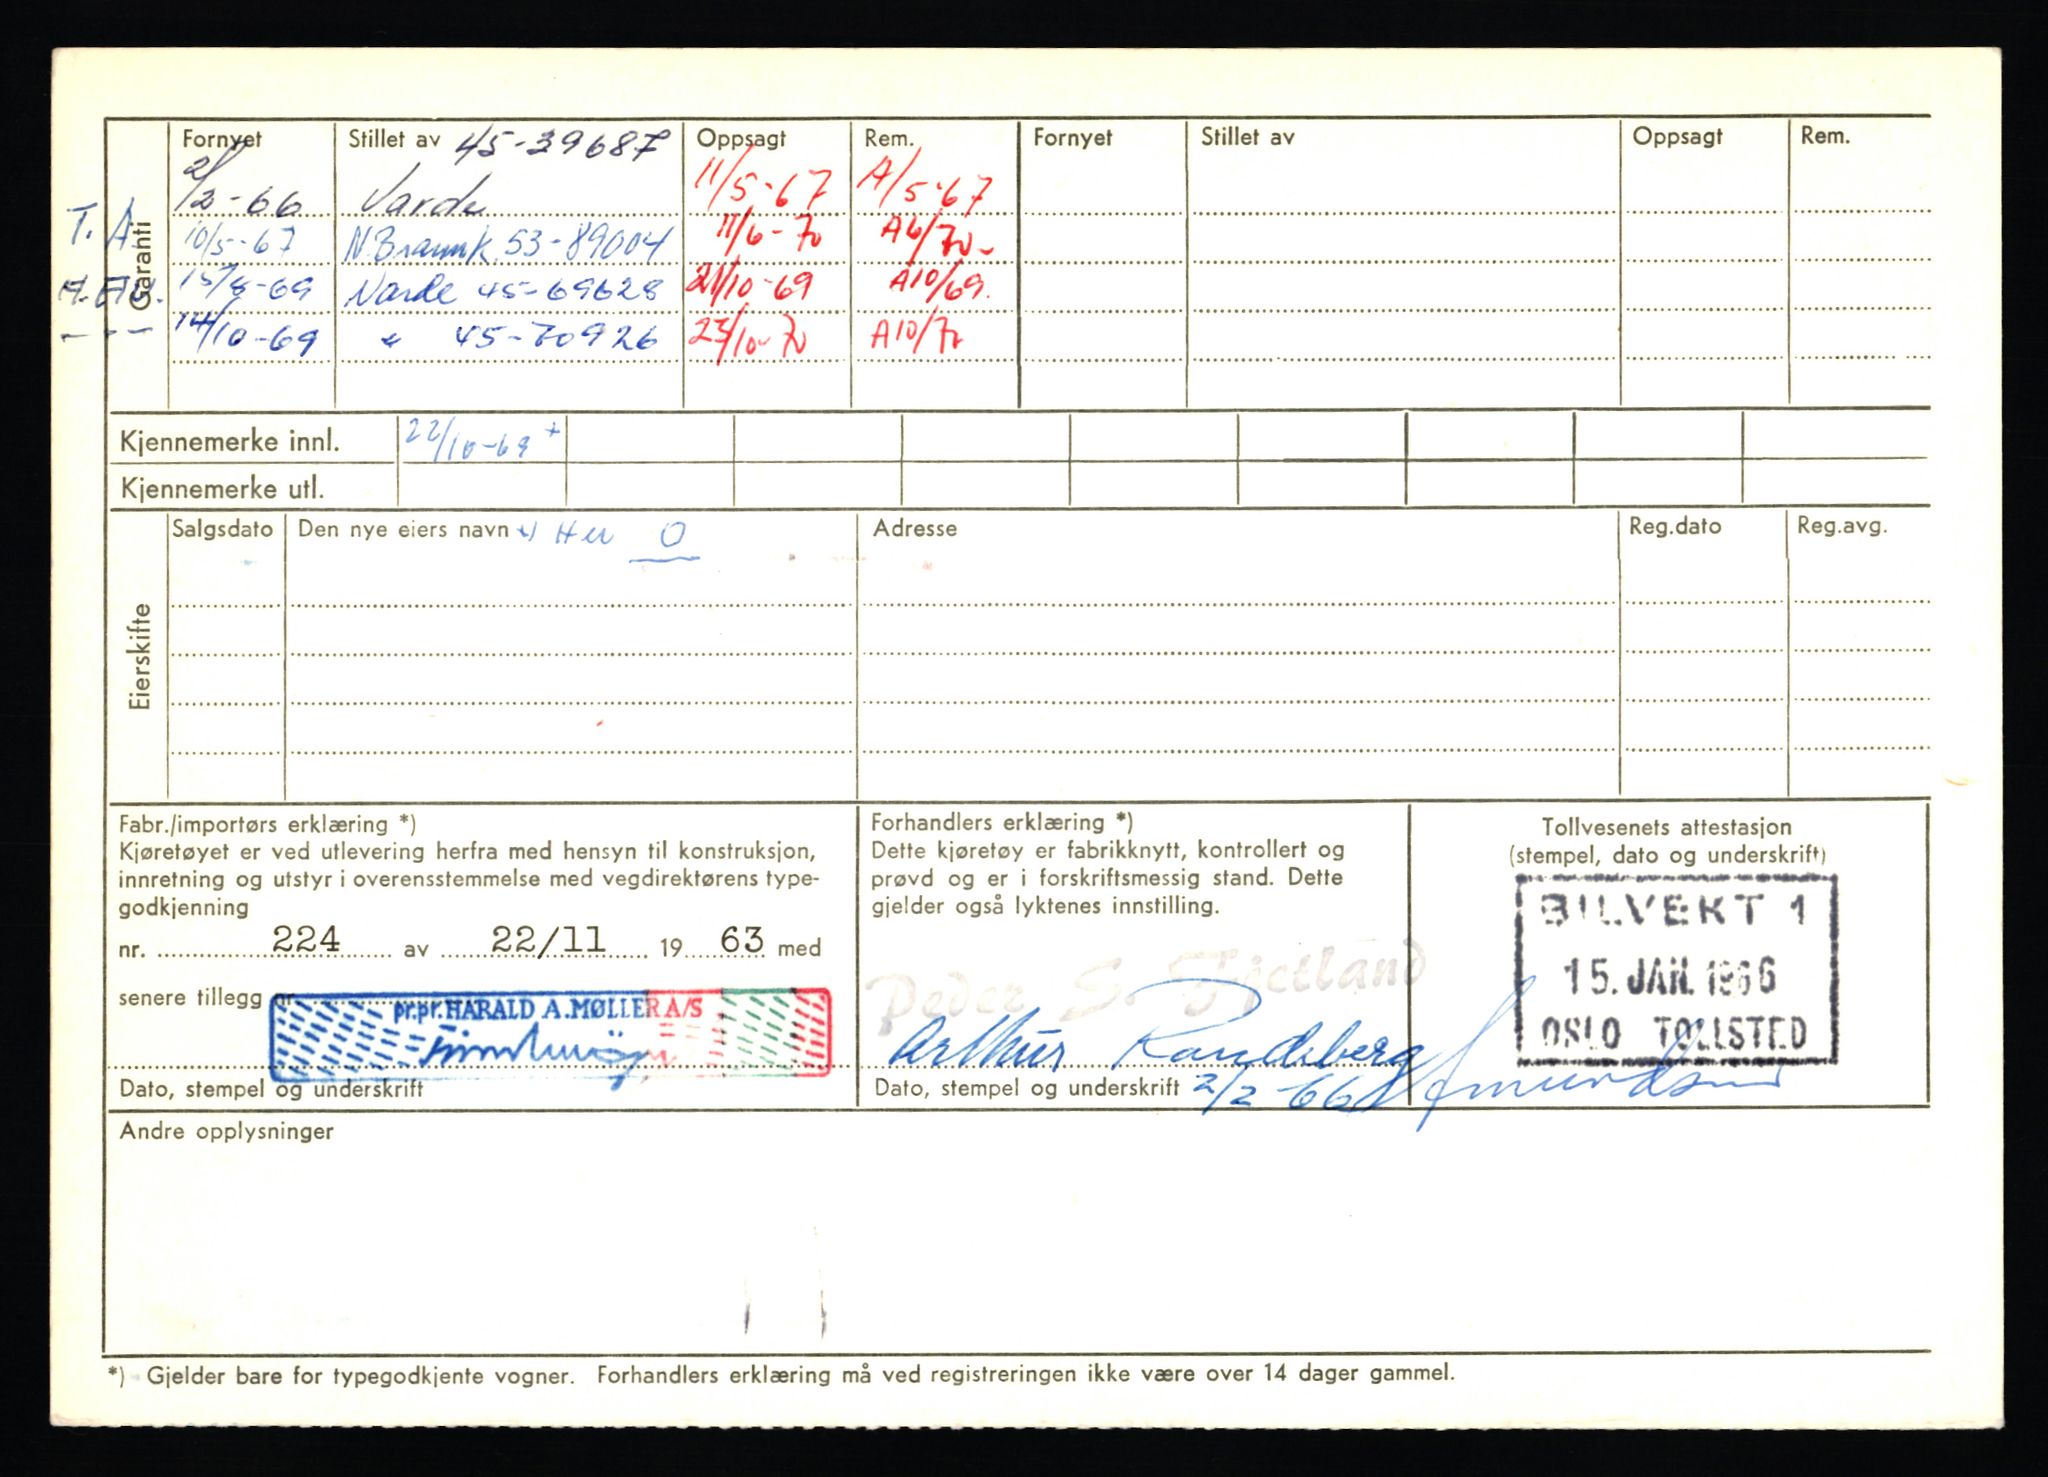 Garanti
Fornyet Stillet av 45-39687 Oppsagt Rem. Fornyet Stillet av Oppsagt Rem.
2/2-66 Varde 11/5-67 A/5-67
T. A. 10/5-67 N.Brannk. 53-89004 11/6-70 A6/70-
15/8-69 Varde 45-69628 21/10-69 A10/69.
14/10-69 " 45-70926 23/10-70 A10/70
Kjennemerke innl. 22/10-69 +
Kjennemerke utl.
Eierskifte
Salgsdato Den nye eiers navn +) Her O Adresse Reg.dato Reg.avg.
Fabr./importørs erklæring *)
Kjøretøyet er ved utlevering herfra med hensyn til konstruksjon,
innretning og utstyr i overensstemmelse med vegdirektørens type-
godkjenning
nr. 224 av 22/11 19 63 med
senere tillegg nr.
pr.pr. HARALD A. MØLLER A/S
Dato, stempel og underskrift
Forhandlers erklæring *)
Dette kjøretøy er fabrikknytt, kontrollert og
prøvd og er i forskriftsmessig stand. Dette
gjelder også lyktenes innstilling.
Peder S. Fjetland
Arthur Randeberg
Dato, stempel og underskrift 2/2-66
Tollvesenets attestasjon
(stempel, dato og underskrift)
BILVEKT 1
15. JAN. 1966
OSLO TOLLSTED
Amundsen
Andre opplysninger
*) Gjelder bare for typegodkjente vogner. Forhandlers erklæring må ved registreringen ikke være over 14 dager gammel.